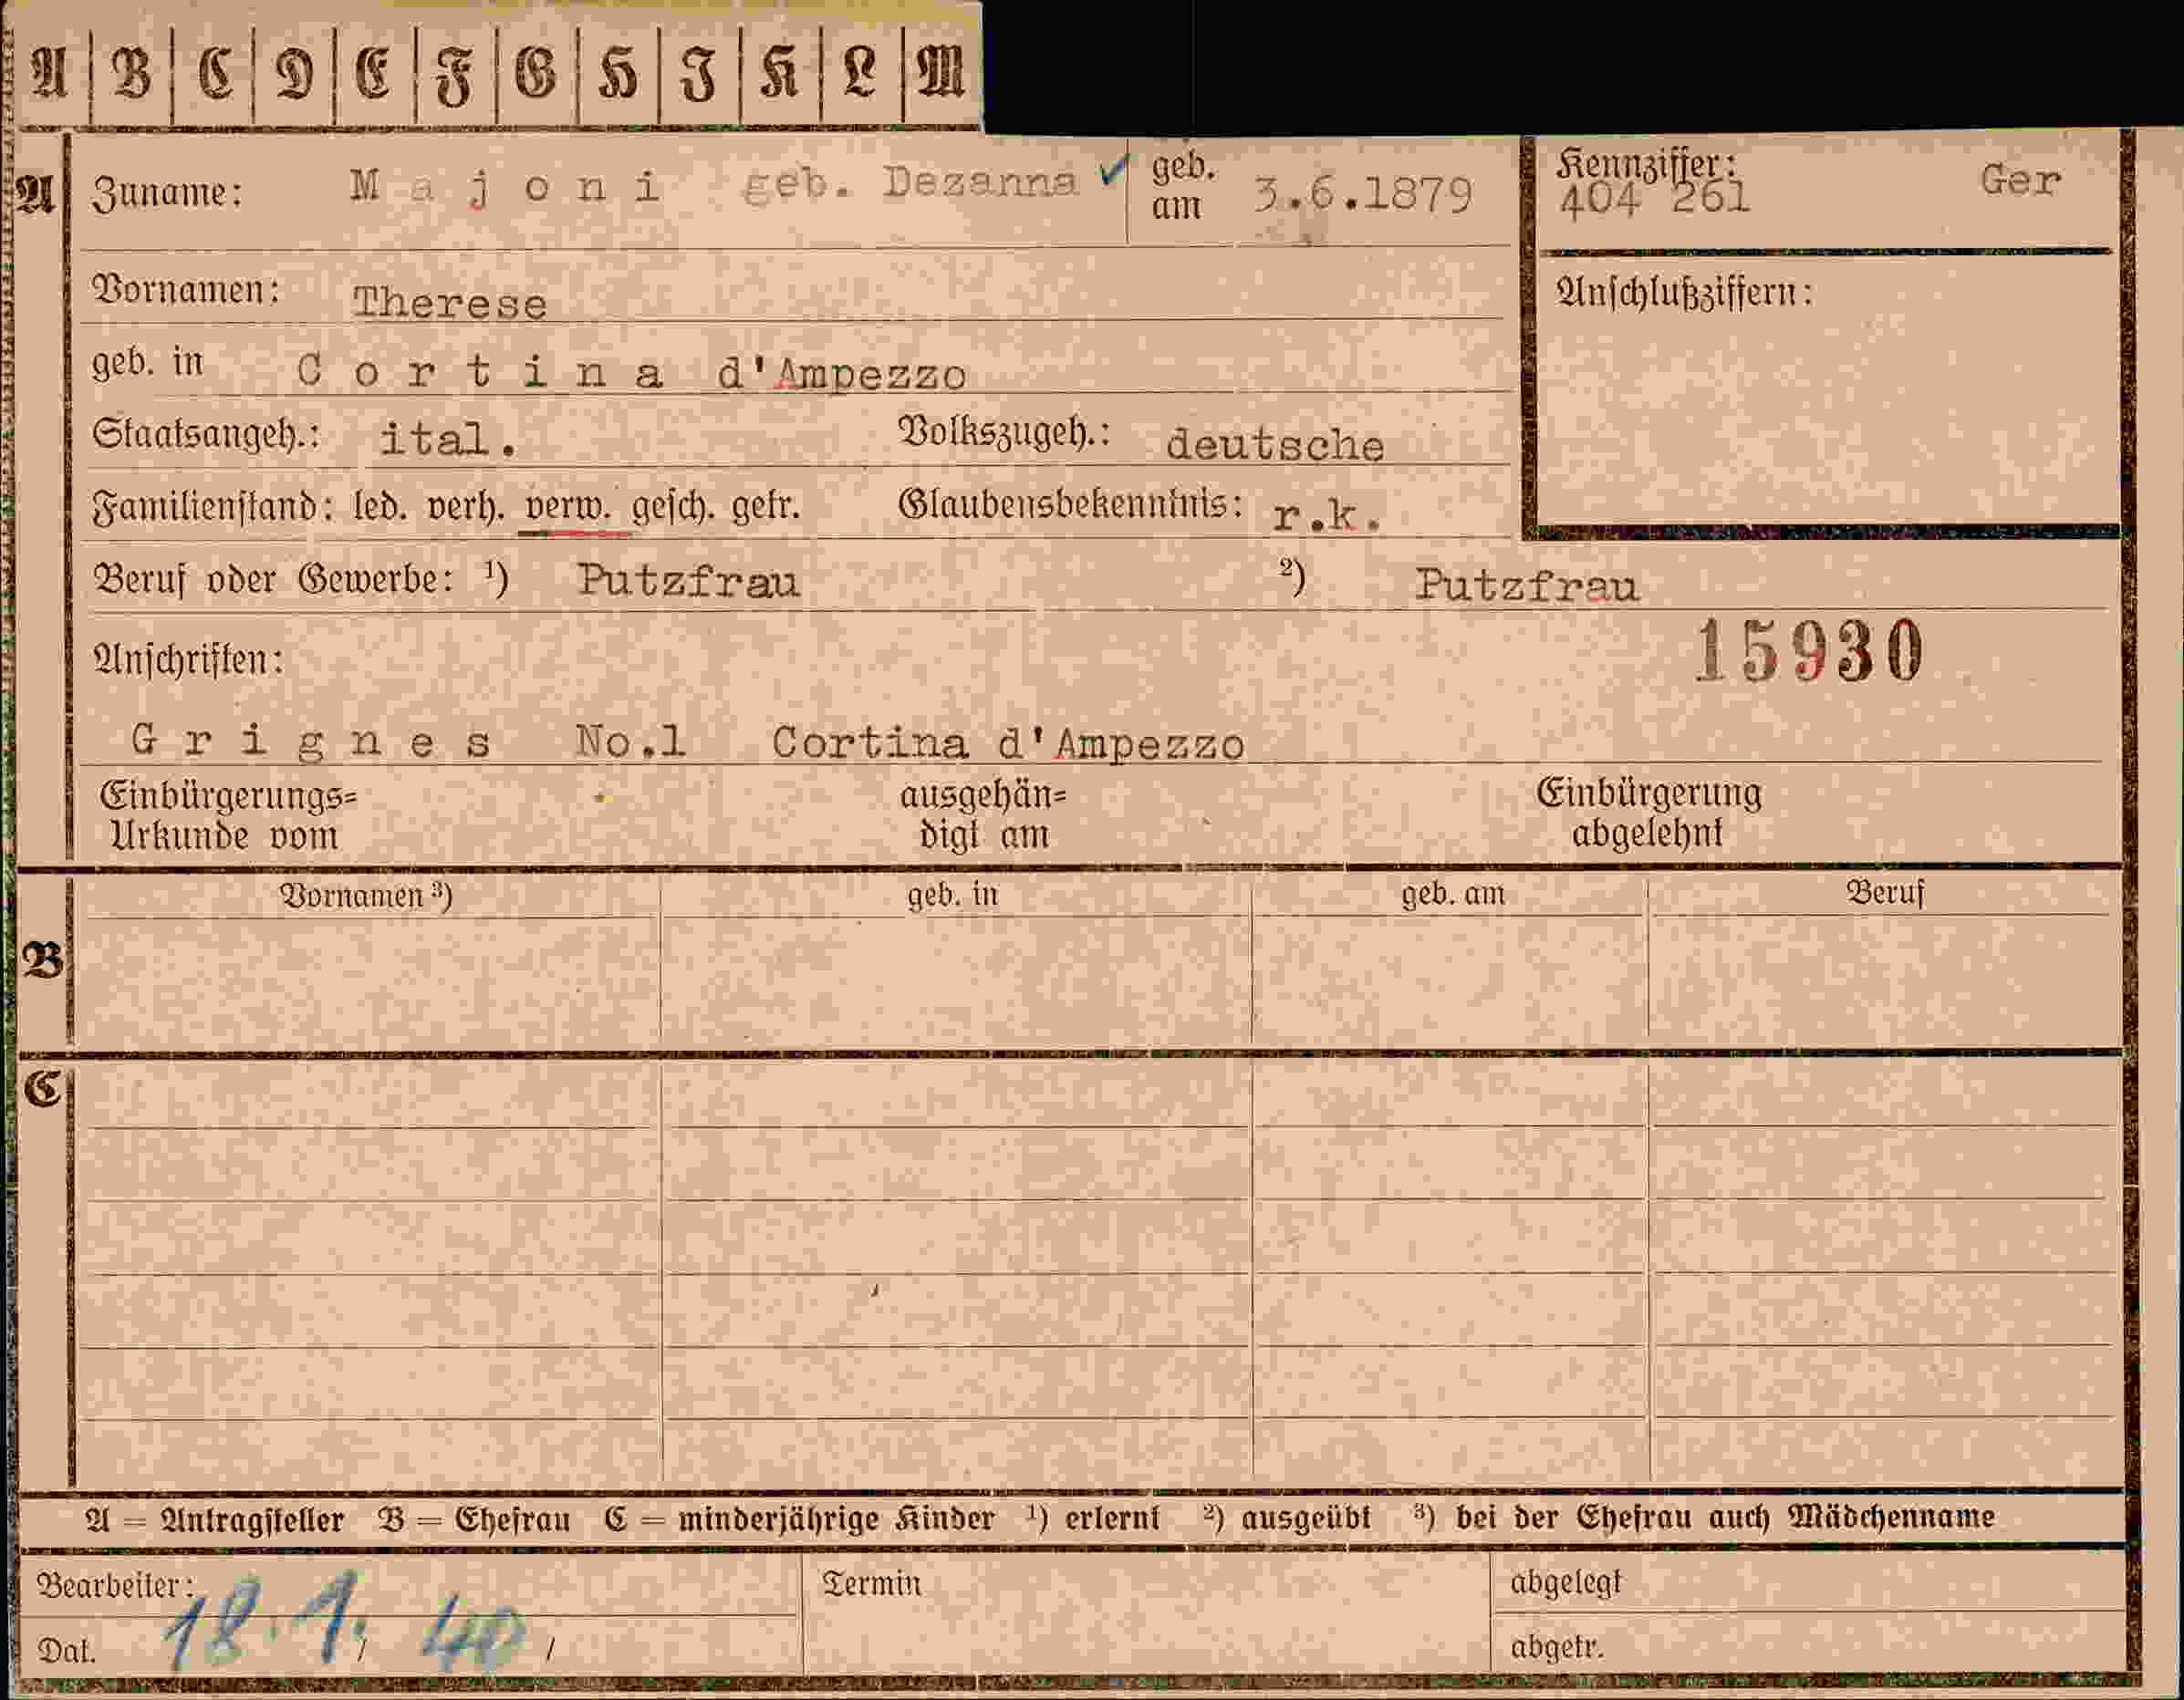 A B C D E F G H I K L M
A Zuname: Majoni geb. Dezanna ✓ geb. am 3.6.1879
Kennziffer: 404 261 Ger
Vornamen: Therese
Anschlußziffern:
geb. in Cortina d'Ampezzo
Staatsangeh.: ital. Volkszugeh.: deutsche
Familienstand: led. verh. verw. gesch. getr. Glaubensbekenntnis: r.k.
Beruf oder Gewerbe: ¹) Putzfrau ²) Putzfrau
Anschriften: 15930
Grignes No.1 Cortina d'Ampezzo
Einbürgerungs= ausgehän= Einbürgerung
Urkunde vom digt am abgelehnt
Vornamen ³) geb. in geb. am Beruf
B
C
A = Antragsteller B = Ehefrau C = minderjährige Kinder ¹) erlernt ²) ausgeübt ³) bei der Ehefrau auch Mädchenname
Bearbeiter: Termin abgelegt
Dat. 18.1. 40 abgetr.